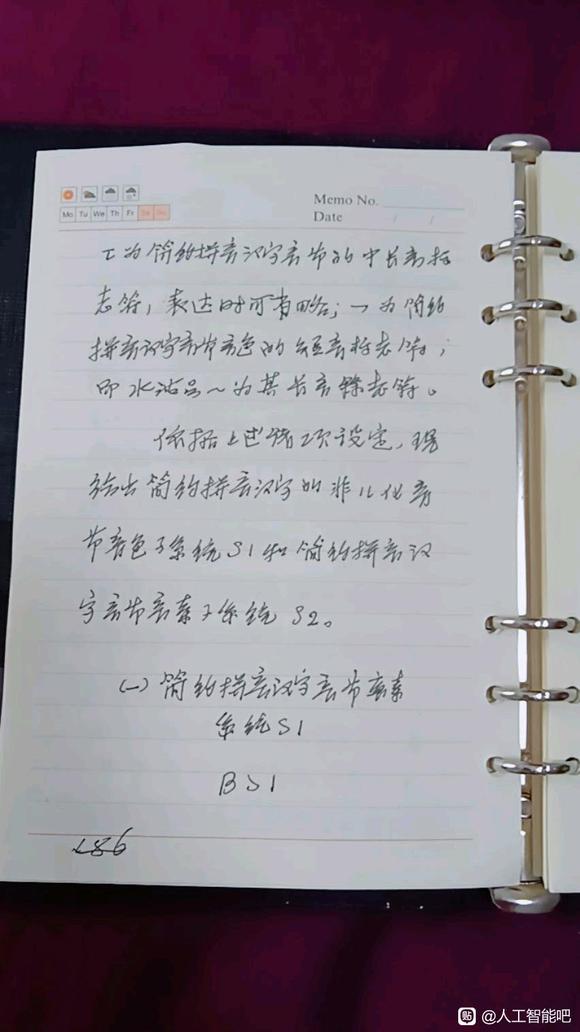 Memo No.
Date / /
Mo Tu We Th Fr Sa Su
为简约拼音汉字音节的中长音标
志符，表达时可省略；一为简约
拼音汉字音节音色的短音标志符；
即水波号～为其长音标志符。
依据上述几项设定，现
给出简约拼音汉字的非儿化音
节音色子系统S1和简约拼音汉
字音节音素子系统S2。
(一)简约拼音汉字音节音素
系统S1
BS1
286
@人工智能吧